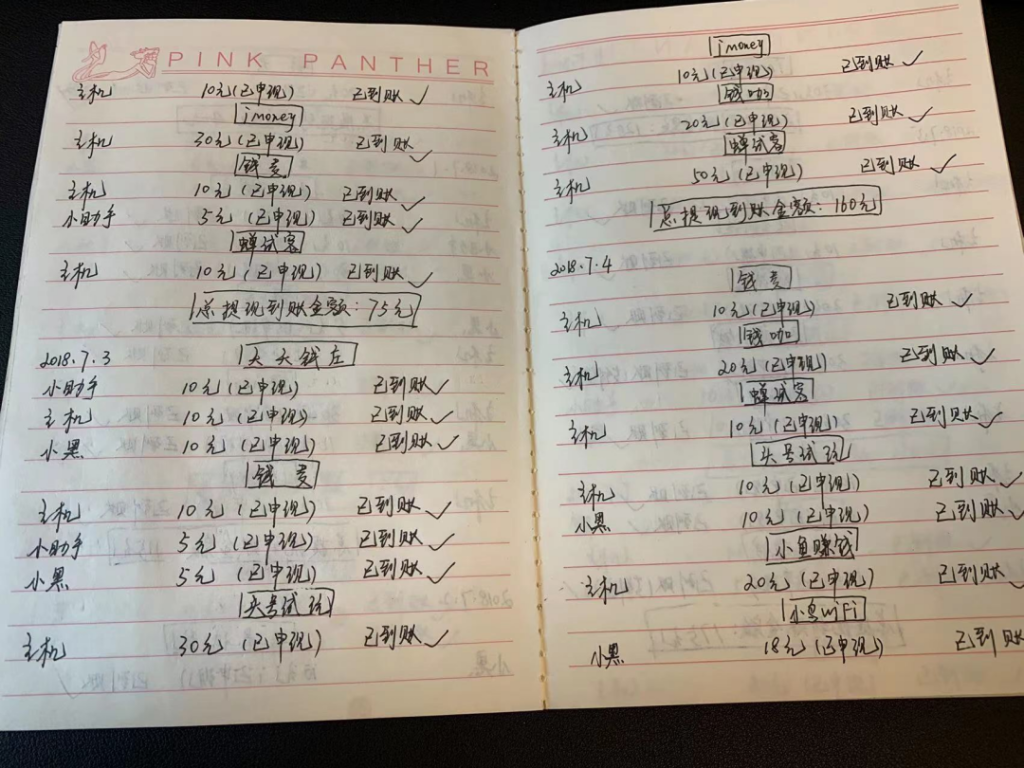 PINK PANTHER
主机 10元(已申现) 已到账 ✓
imoney
主机 30元(已申现) 已到账 ✓
钱麦
主机 10元(已申现) 已到账 ✓
小助手 5元(已申现) 已到账 ✓
蝉试客
主机 10元(已申现) 已到账 ✓
总提现到账金额:75元
2018.7.3 天天钱庄
小助手 10元(已申现) 已到账 ✓
主机 10元(已申现) 已到账 ✓
小黑 10元(已申现) 已到账 ✓
钱麦
主机 10元(已申现) 已到账 ✓
小助手 5元(已申现) 已到账 ✓
小黑 5元(已申现) 已到账 ✓
头号试玩
主机 30元(已申现) 已到账 ✓
imoney
主机 10元(已申现) 已到账 ✓
钱咖
主机 20元(已申现) 已到账 ✓
蝉试客
主机 50元(已申现) 已到账 ✓
总提现到账金额:160元
2018.7.4 钱麦
主机 10元(已申现) 已到账 ✓
钱咖
主机 20元(已申现) 已到账 ✓
蝉试客
主机 10元(已申现) 已到账 ✓
头号试玩
主机 10元(已申现) 已到账 ✓
小黑 10元(已申现) 已到账 ✓
小鱼赚钱
主机 20元(已申现) 已到账 ✓
WiFi
小黑 18元(已申现) 已到账